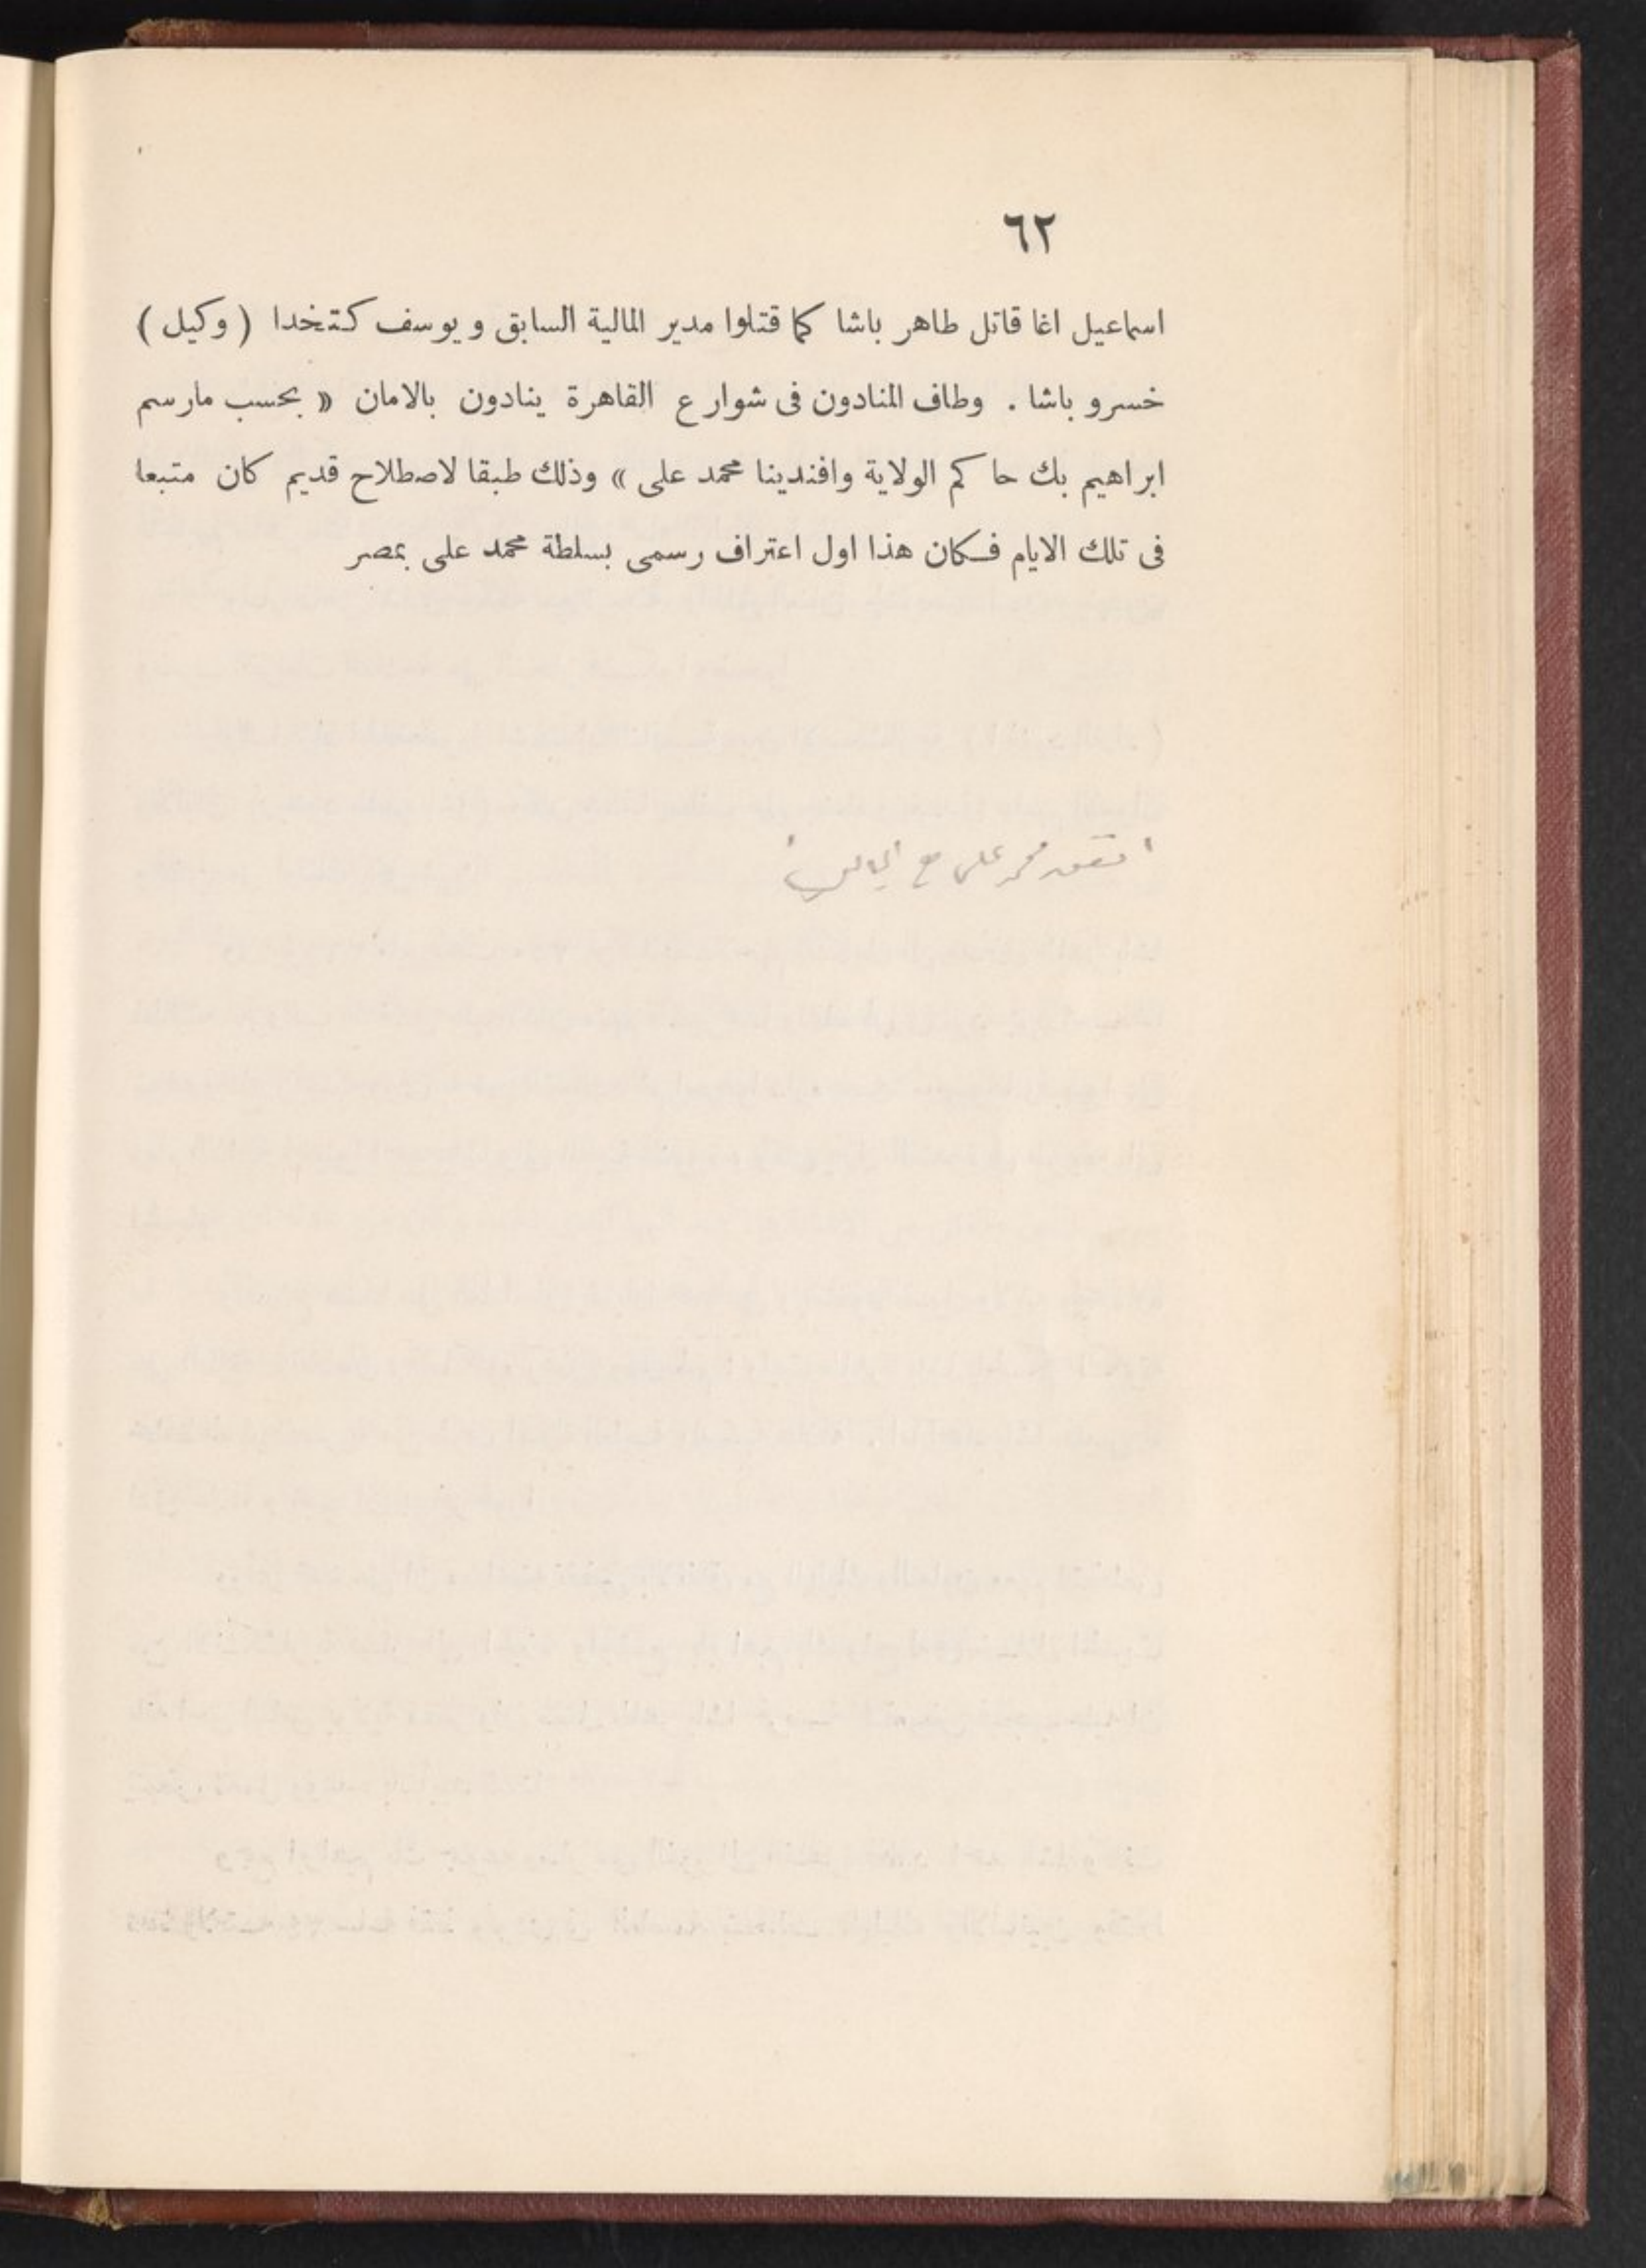 ٦٢
اسماعيل اغا قاتل طاهر باشا كما قتلوا مدير المالية السابق و يوسف كتخدا ( وكيل )
خسرو باشا . وطاف المنادون فى شوارع القاهرة ينادون بالامان « بحسب مارسم
ابراهيم بك حاكم الولاية وافندينا محمد على » وذلك طبقا لاصطلاح قديم كان متبعا
فى تلك الايام فكان هذا اول اعتراف رسمى بسلطة محمد على بمصر
محمد على مع